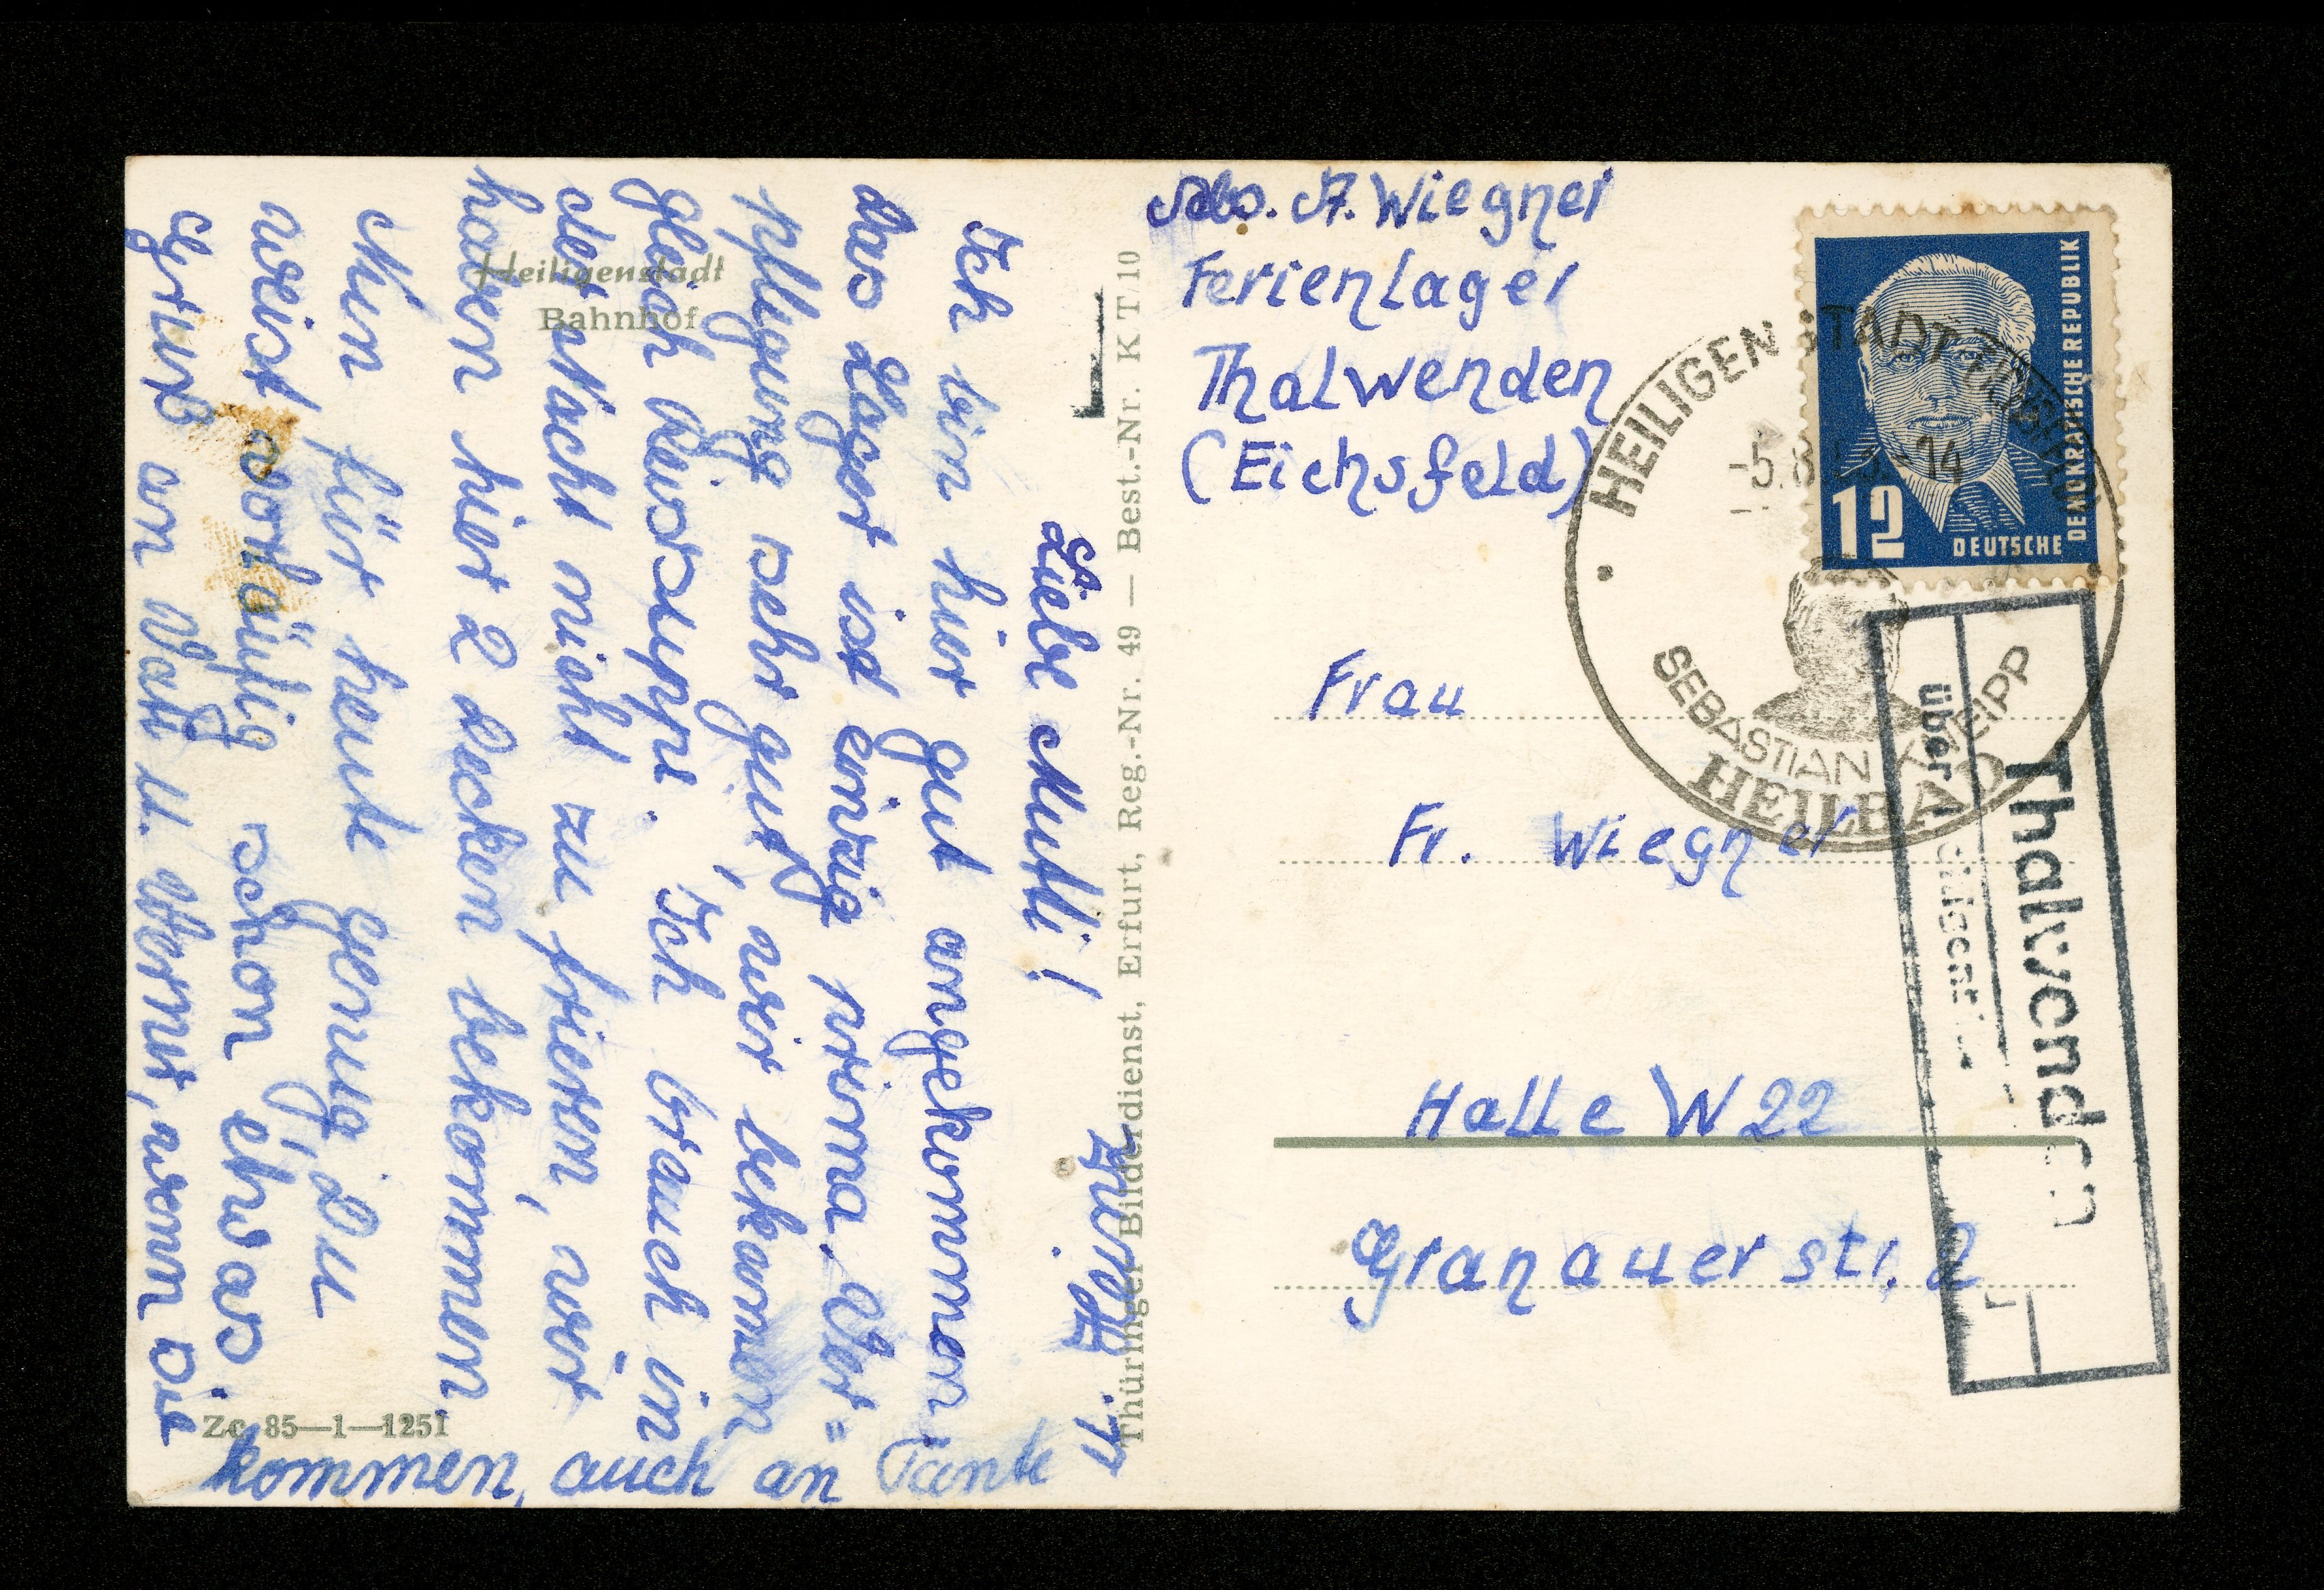 Heiligenstadt
Bahnhof
Liebe Mutti!
Ich bin hier gut angekommen.
Das Lager ist einzig prima. Ver=
pflegung sehr gut, wir bekamen
gleich Reissuppe. Ich brauch in
der Nacht nicht zu frieren, wir
haben hier 2 Decken bekommen.
Nun für heute genug, Du
weist vorläufig schon etwas.
Gruß an Vati u. Bernt, wenn sie
kommen, auch an Tante
Zc 85—1—1251
Thüringer Bilderdienst, Erfurt, Reg.-Nr. 49 — Best.-Nr. K T/10
Abs. A. Wiegner
Ferienlager
Thalwenden
(Eichsfeld)
DEUTSCHE DEMOKRATISCHE REPUBLIK
12
HEILIGENSTADT
SEBASTIAN KNEIPP
HEILBAD
Thalwenden
über
Frau
Fr. Wiegner
Halle W 22
Granauerstr. 2